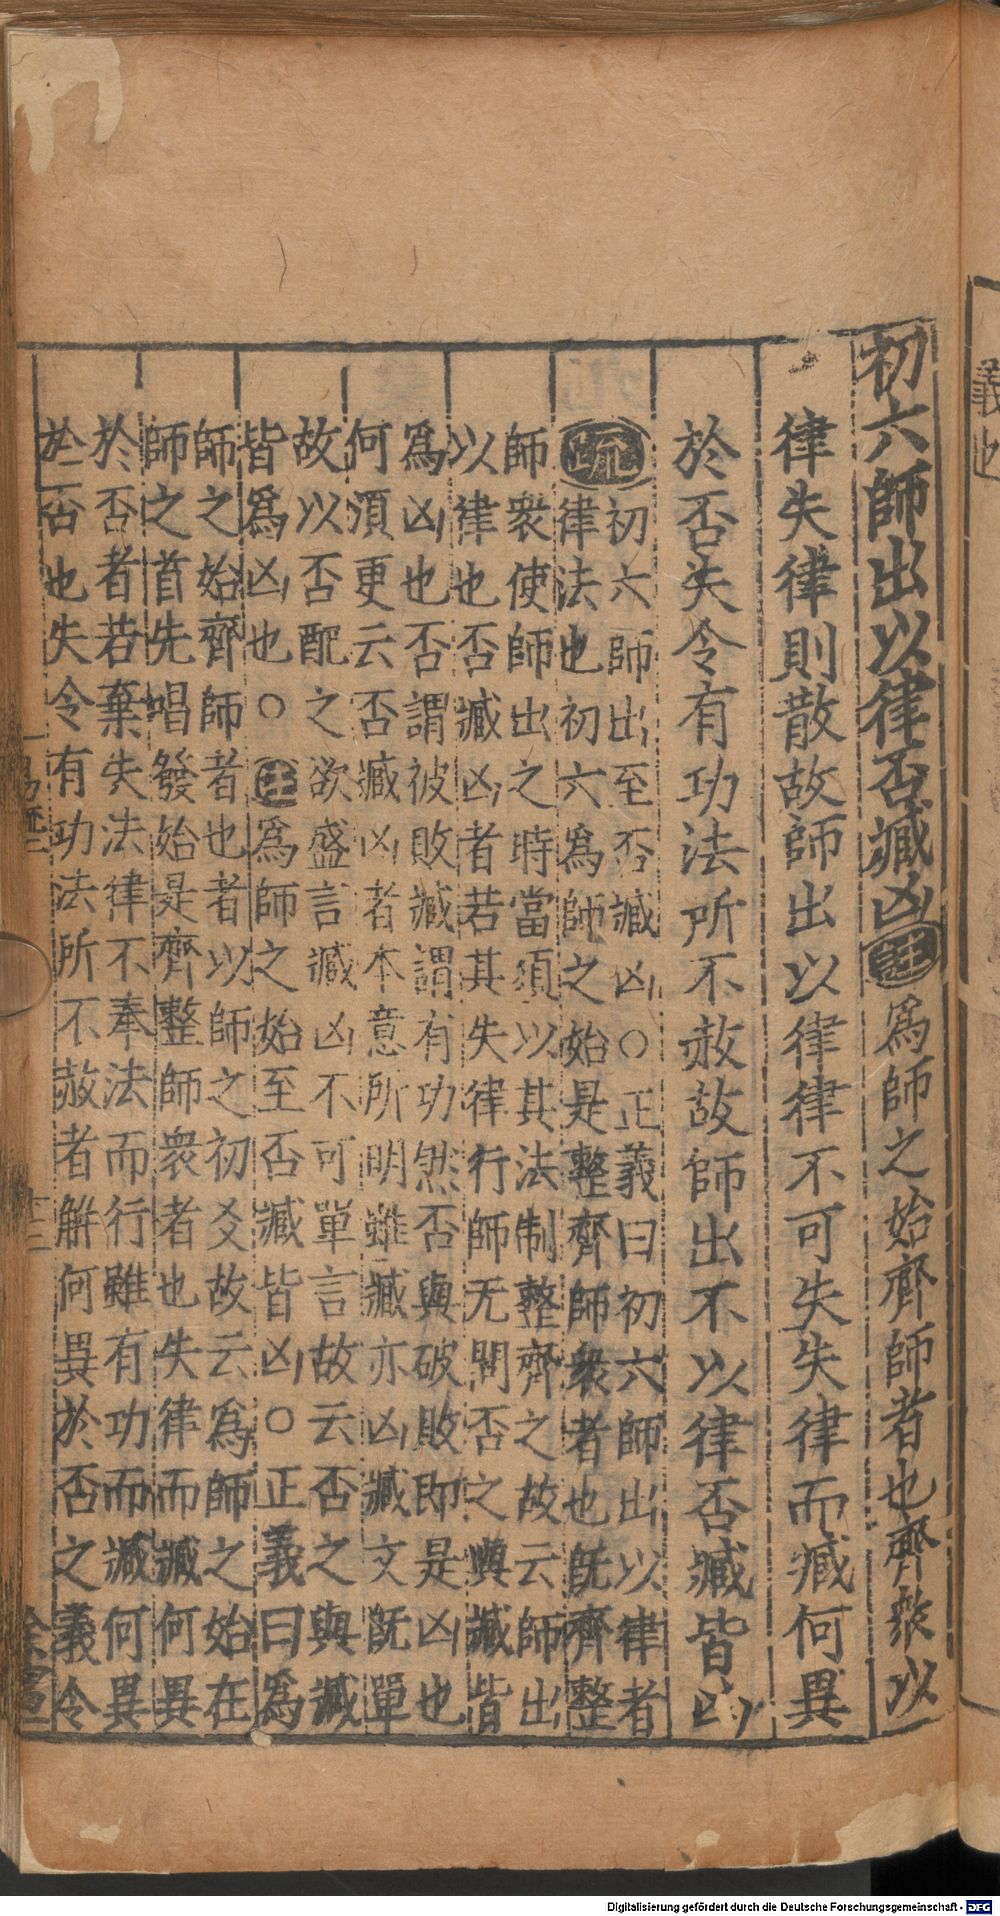 初六師出以律否臧凶註爲師之始齊師者也齊衆以
律失律則散故師出以律律不可失失律而臧何異
於否失令有功法所不赦故師出不以律否臧皆凶
疏
初六師出至否臧凶○正義曰初六師出以律者
律法也初六爲師之始是整齊師衆者也既齊整
師衆使師出之時當須以其法制整齊之故云師出
以律也否臧凶者若其失律行師无問否之與臧皆
爲凶也否謂被敗臧謂有功然否與破敗即是凶也
何須更云否臧凶者本意所明雖臧亦凶臧文既單
故以否配之欲盛言臧凶不可單言故云否之與臧
皆爲凶也○註爲師之始至否臧皆凶○正義曰爲
師之始齊師者也者以師之初爻故云爲師之始在
師之首先唱發始是齊整師衆者也失律而臧何異
於否者若棄失法律不奉法而行雖有功而臧何異
於否也失令有功法所不赦者解何異於否之義令
易疏二
十三
義也